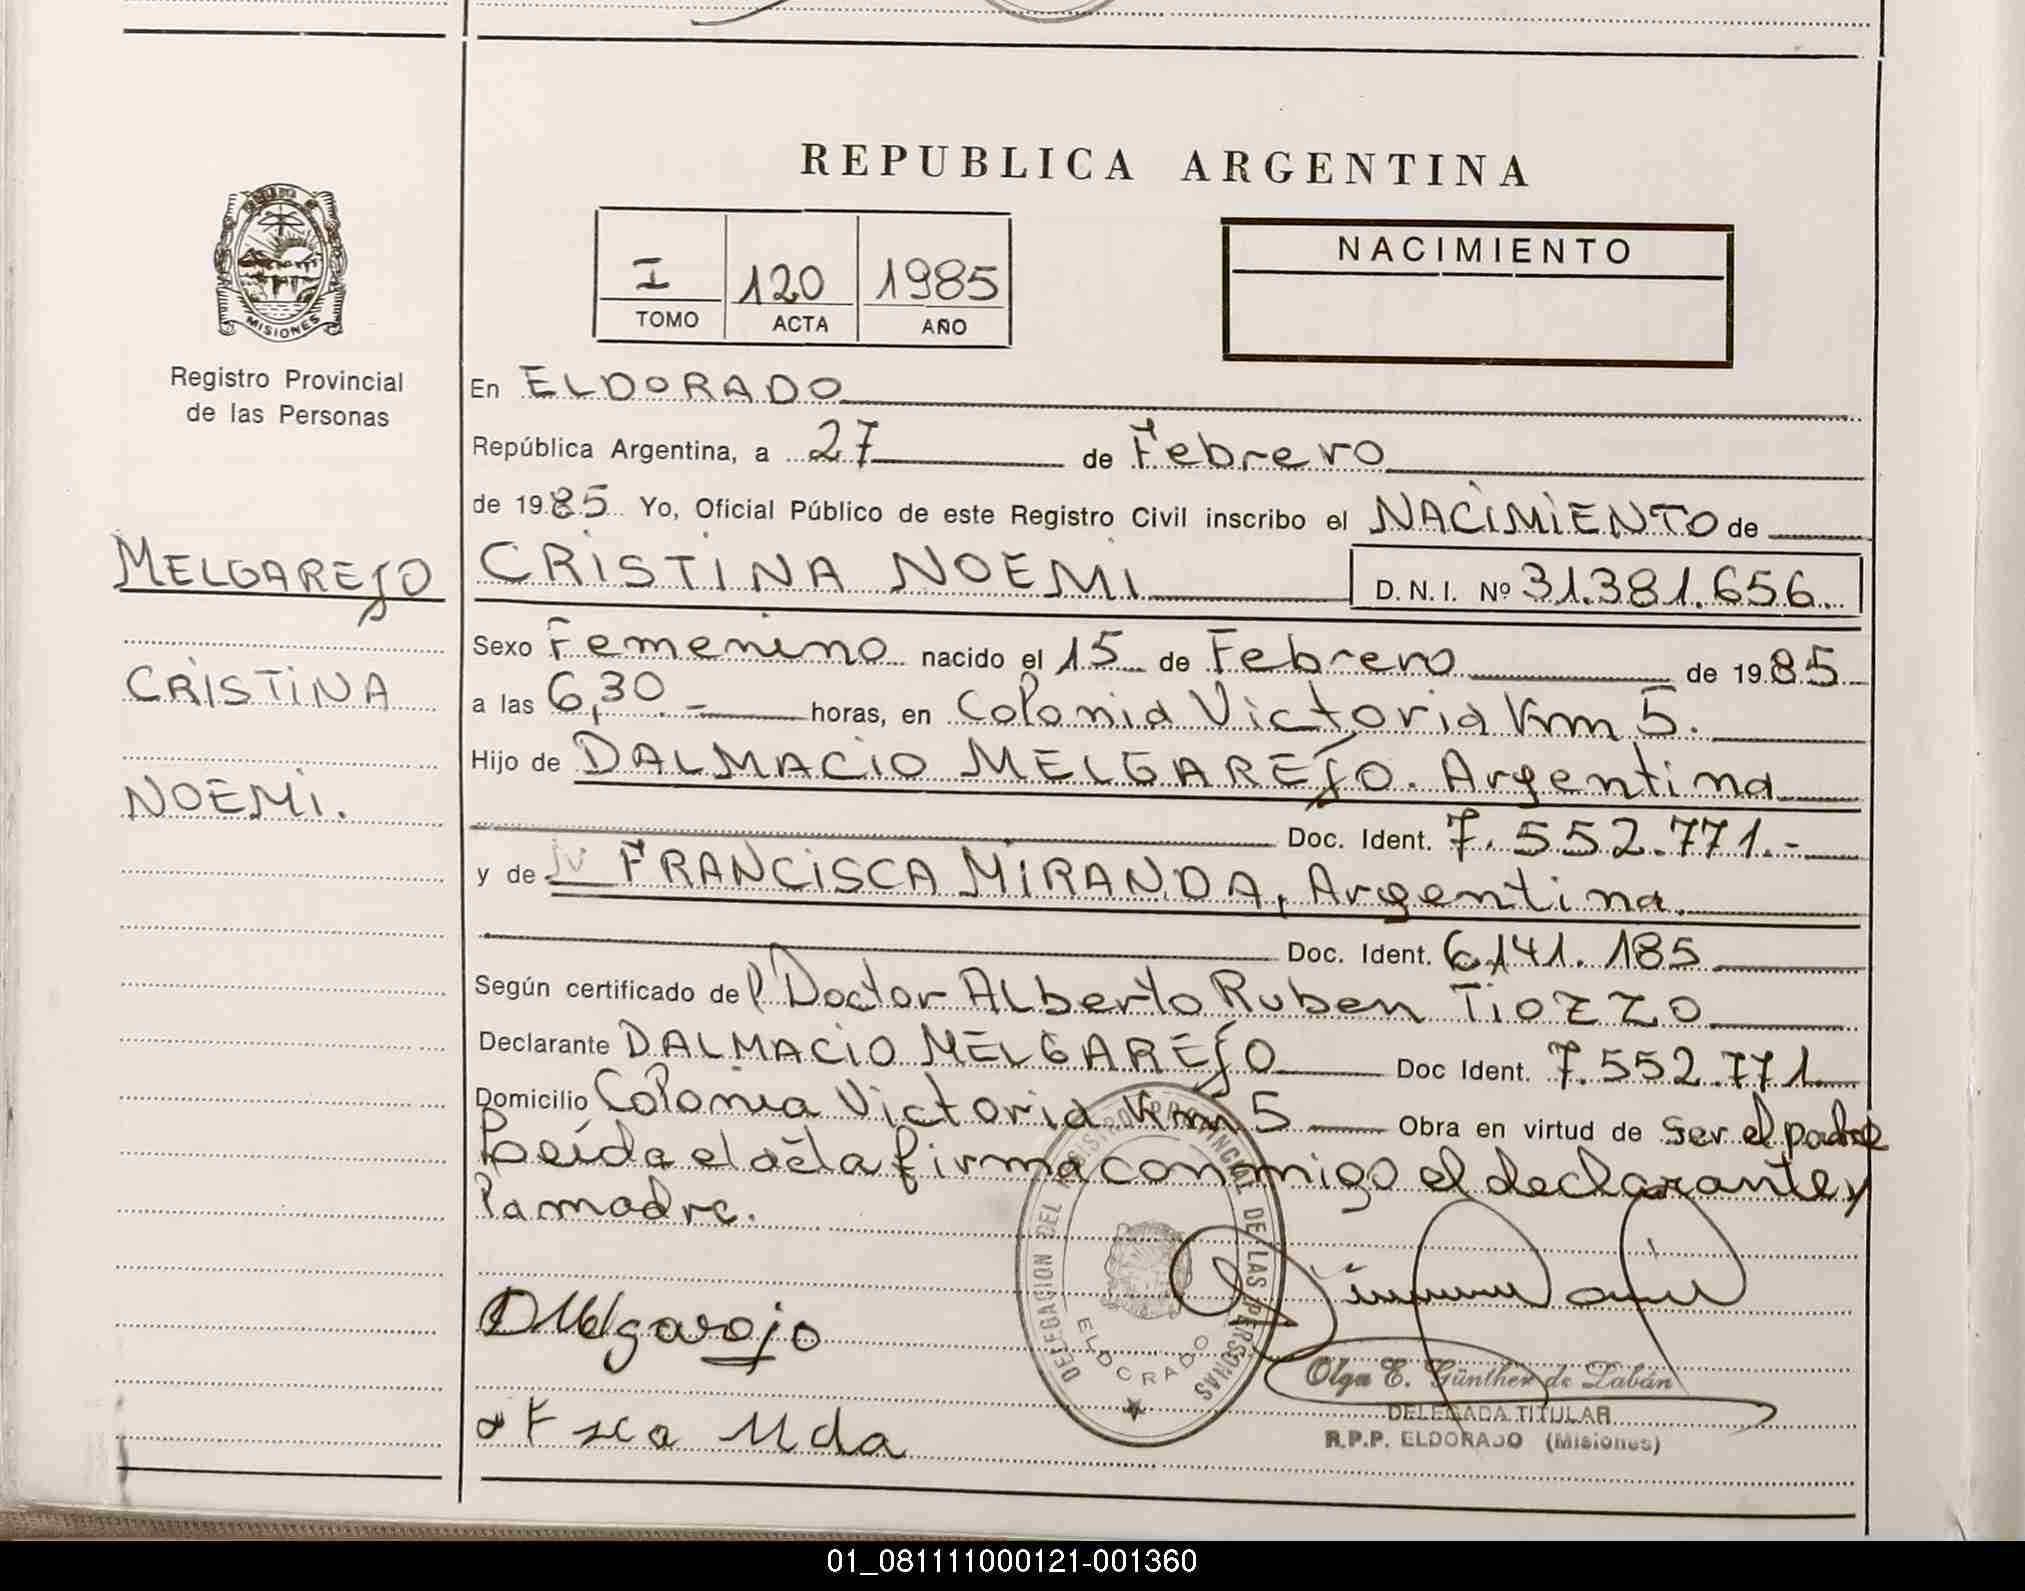 REPUBLICA ARGENTINA
I 120 1985
TOMO ACTA AÑO
NACIMIENTO
MISIONES
Registro Provincial
de las Personas
MELGAREJO
CRISTINA
NOEMI.
En ELDORADO
República Argentina, a 27 de Febrero
de 1985 Yo, Oficial Público de este Registro Civil inscribo el NACIMIENTO de
CRISTINA NOEMI D.N.I. Nº 31.381.656
Sexo Femenino nacido el 15 de Febrero de 1985
a las 6,30.- horas, en Colonia Victoria Km 5.
Hijo de DALMACIO MELGAREJO. Argentina
Doc. Ident. 7.552.771.-
y de FRANCISCA MIRANDA, Argentina.
Doc. Ident. 6.141.185
Según certificado del Doctor Alberto Ruben Tiozzo
Declarante DALMACIO MELGAREJO Doc Ident. 7.552.771.
Domicilio Colonia Victoria Km 5 Obra en virtud de ser el padre
Leída el acta firma conmigo el declarante y
la madre.
DELEGACION DEL REGISTRO PROVINCIAL DE LAS PERSONAS
ELDORADO
DMelgarejo
Olga E. Günther de Labán
DELEGADA TITULAR
R.P.P. ELDORADO (Misiones)
Fsca Mda
01_081111000121-001360